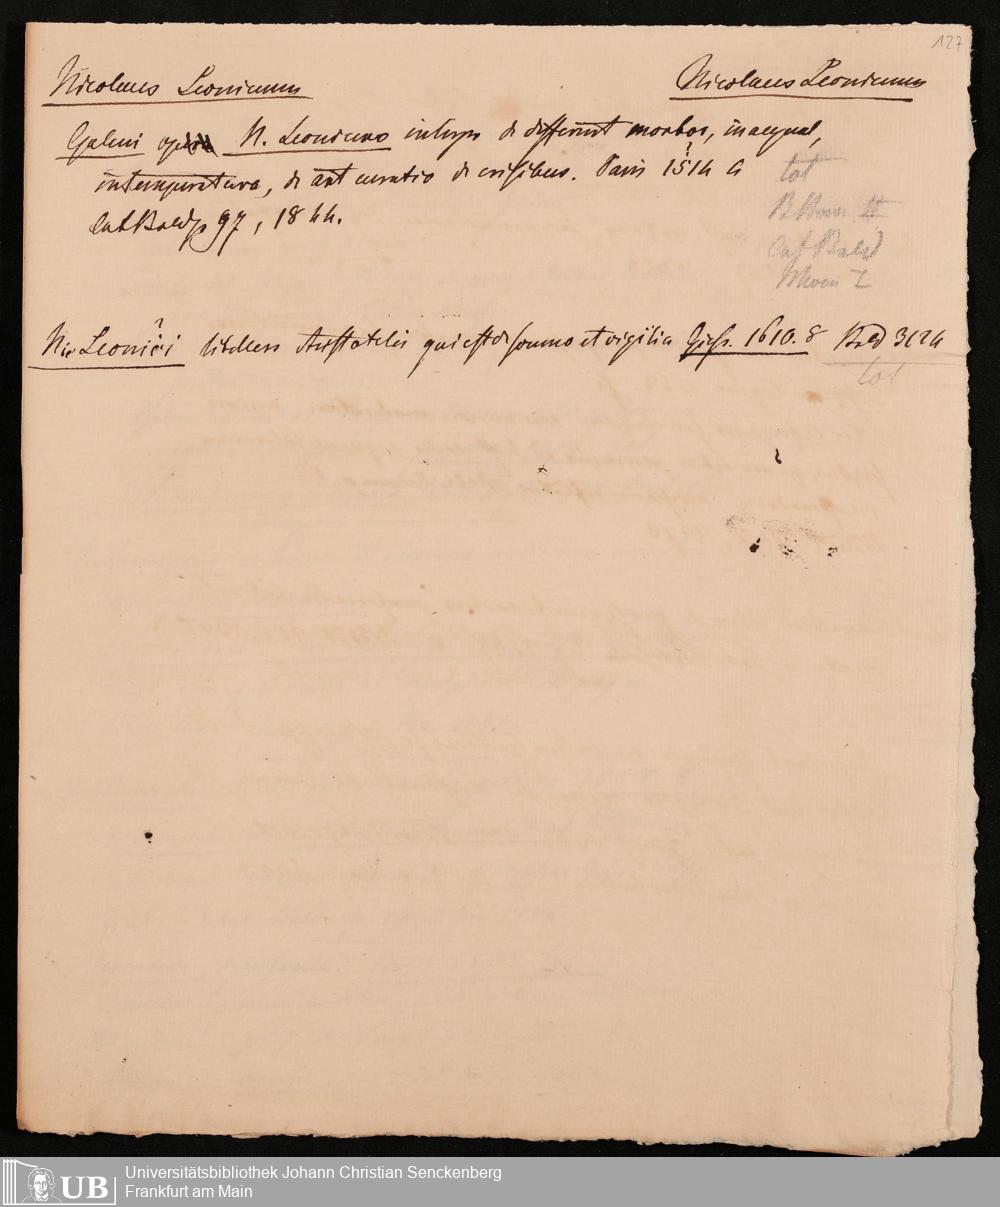 127
Nicolaus Leonicenus
Nicolaus Leonicenus
Galeni opera N. Leoniceno interpr de different morbor, inaequal,
intemperatura, de art curatio de crisibus. Paris 1514 4
Cat Bald p 97, 1844.
tot
Cat Bald
Nic Leonici libellus Aristotelis qui est de somno et vigilia Giess. 1610. 8 Bald 3124
tot
?
?
Universitätsbibliothek Johann Christian Senckenberg
UB Frankfurt am Main